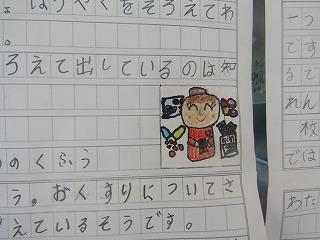 はうやくをそろえてわ
。
ろえて出しているのは知
のくふう
う。おくすりについてさ
えているそうです。
一つ
です
るで
れん
枚
では
あた